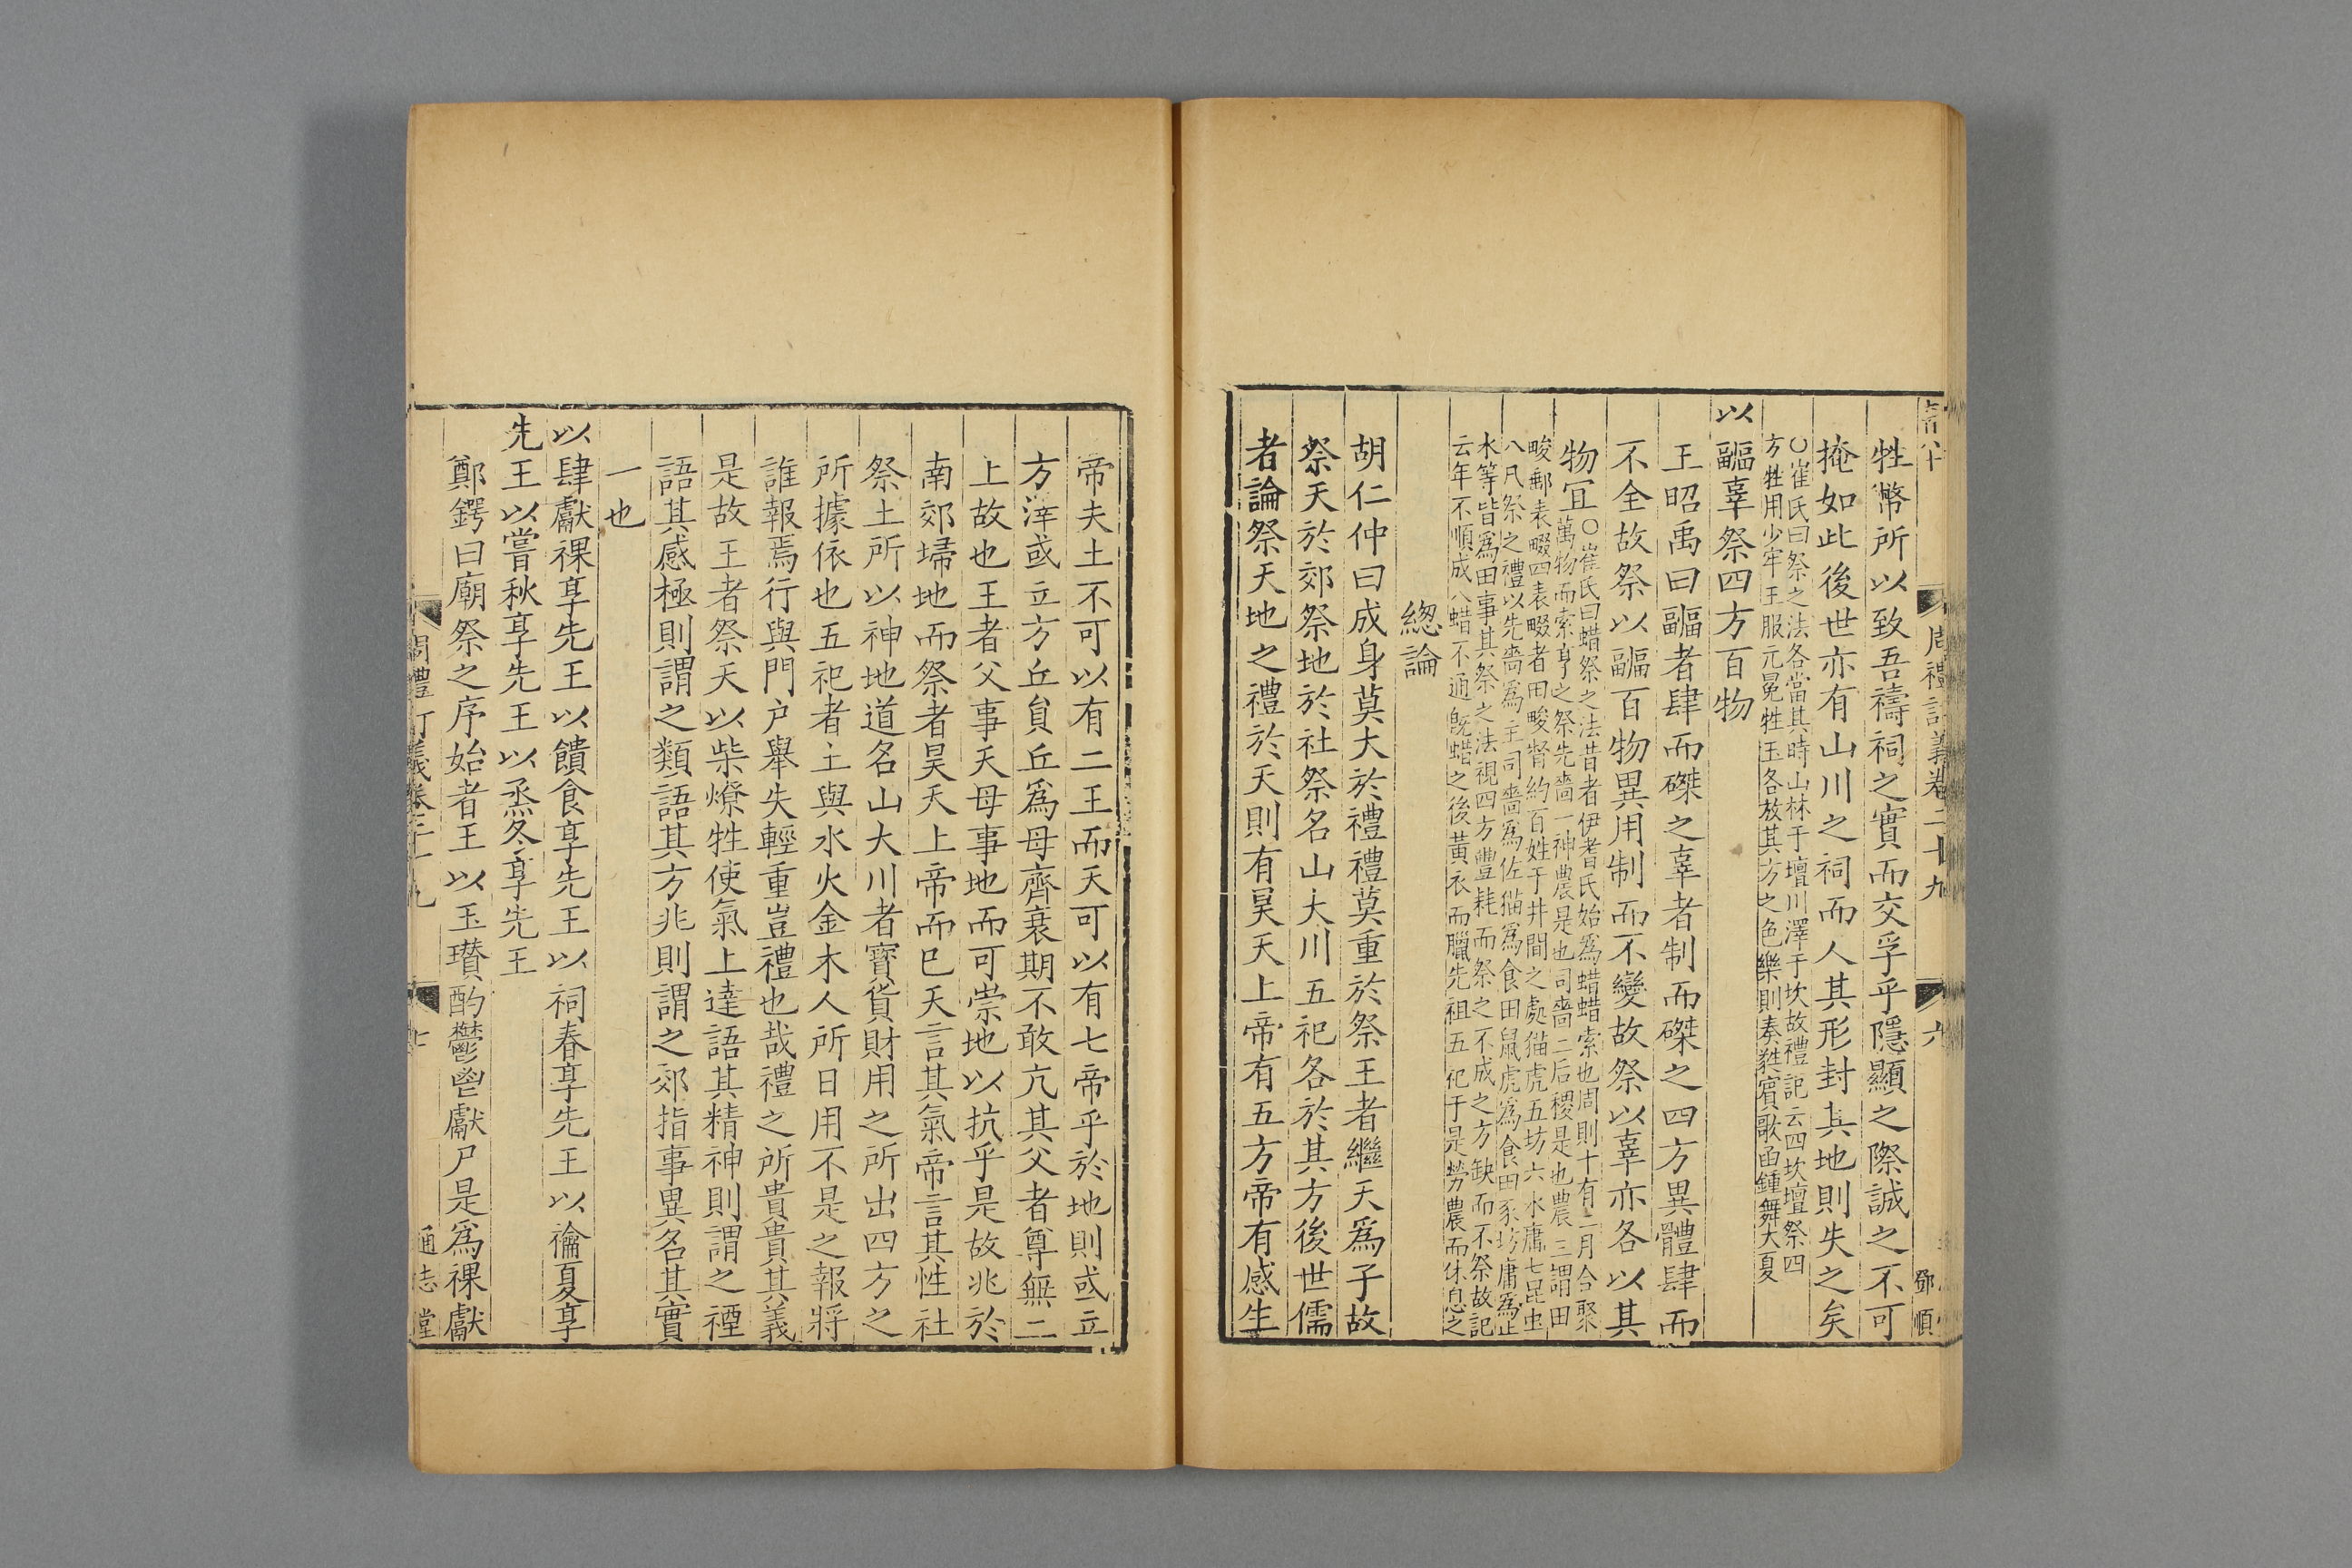 周禮訂義卷二十九
六
鄧順
牲幣所以致吾禱祠之實而交孚乎隱顯之際誠之不可
掩如此後世亦有山川之祠而人其形封其地則失之矣
○崔氏曰祭之法各當其時山林于壇川澤于坎故禮記云四坎壇祭四
方牲用少牢王服元冕牲玉各放其方之色樂則奏蕤賓歌函鍾舞大夏
以疈辜祭四方百物
王昭禹曰疈者肆而磔之辜者制而磔之四方異體肆而
不全故祭以疈百物異用制而不變故祭以辜亦各以其
物冝
○崔氏曰蜡祭之法昔者伊耆氏始爲蜡蜡索也周則十有二月合聚
萬物而索亨之祭先嗇一神農是也司嗇二后稷是也農三謂田
畯郵表畷四表畷者田畯督約百姓于井間之處猫虎五坊六水庸七昆虫
八凡祭之禮以先嗇爲主司嗇爲佐猫爲食田鼠虎爲食田豕坊庸爲止
水等皆爲田事其祭之法視四方豐耗而祭之不成之方缺而不祭故記
云年不順成八蜡不通旣蜡之後黃衣而臘先祖五祀于是勞農而休息之
緫論
胡仁仲曰成身莫大於禮禮莫重於祭王者繼天爲子故
祭天於郊祭地於社祭名山大川五祀各於其方後世儒
者論祭天地之禮於天則有昊天上帝有五方帝有感生
帝夫土不可以有二王而天可以有七帝乎於地則或立
方澤或立方丘貟丘爲母齊衰期不敢亢其父者尊無二
上故也王者父事天母事地而可崇地以抗乎是故兆於
南郊埽地而祭者昊天上帝而巳天言其氣帝言其性社
祭土所以神地道名山大川者寶貨財用之所出四方之
所據依也五祀者土與水火金木人所日用不是之報將
誰報焉行與門户舉失輕重豈禮也哉禮之所貴貴其義
是故王者祭天以柴燎牲使氣上達語其精神則謂之禋
語其感極則謂之類語其方兆則謂之郊指事異名其實
一也
以肆獻祼享先王以饋食享先王以祠春享先王以禴夏享
先王以嘗秋享先王以烝冬享先王
鄭鍔曰廟祭之序始者王以玉瓚酌鬱鬯獻尸是爲祼獻
周禮訂義卷二十九
通志堂